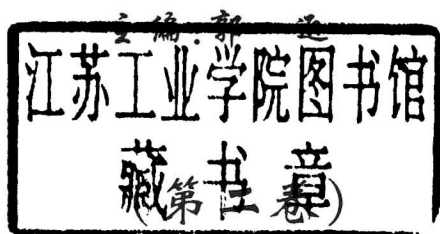 主编:郭
江苏工业学院图书馆
藏书章
(第 卷)